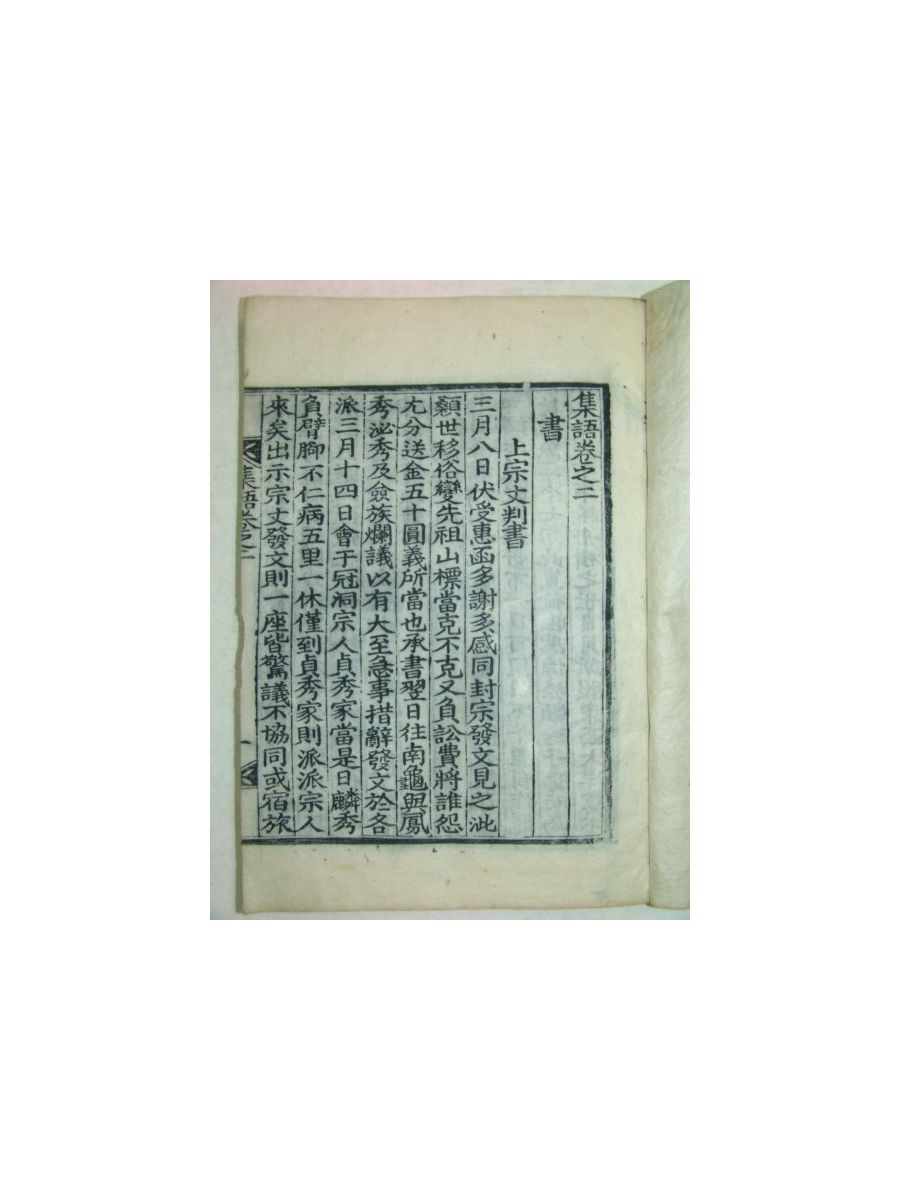 集語卷之二
書
上宗丈判書
三月八日伏受惠函多謝多感同封宗發文見之泚
顙世移俗變先祖山標當克不克又負訟費將誰怨
尤分送金五十圓義所當也承書翌日往南龜與鳳
秀泌秀及僉族爛議以有大至急事措辭發文於各
派三月十四日會于冠洞宗人貞秀家當是日麟秀
負臂脚不仁病五里一休僅到貞秀家則派派宗人
來矣出示宗丈發文則一座皆驚議不協同或宿旅
集語卷之二
一